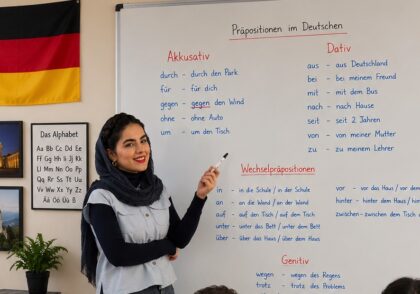 Präpositionen im Deutschen
Akkusativ
durch - durch den Park
für - für dich
gegen - gegen den Wind
ohne - ohne Auto
um - um den Tisch
Dativ
aus - aus Deutschland
bei - bei meinem Freund
mit - mit dem Bus
nach - nach Hause
seit - seit 2 Jahren
von - von meiner Mutter
zu - zu meinem Lehrer
Wechselpräpositionen
in - in die Schule / in der Schule
an - an die Wand / an der Wand
auf - auf den Tisch / auf dem Tisch
unter - unter das Bett / unter dem Bett
über - über das Haus / über dem Haus
vor - vor das Haus / vor dem
hinter - hinter dem Haus / hin
zwischen - zwischen dem Tisch
Genitiv
wegen - wegen des Regens
trotz - trotz des Problems
Das Alphabet
Aa Bb Cc Dd Ee
Ff Gg Hh Ii Jj Kk
Ll Mm Nn Oo Pp
Qq Rr Ss Tt Uu
Vv Ww Xx Yy Zz
Ää Öö Üü ß